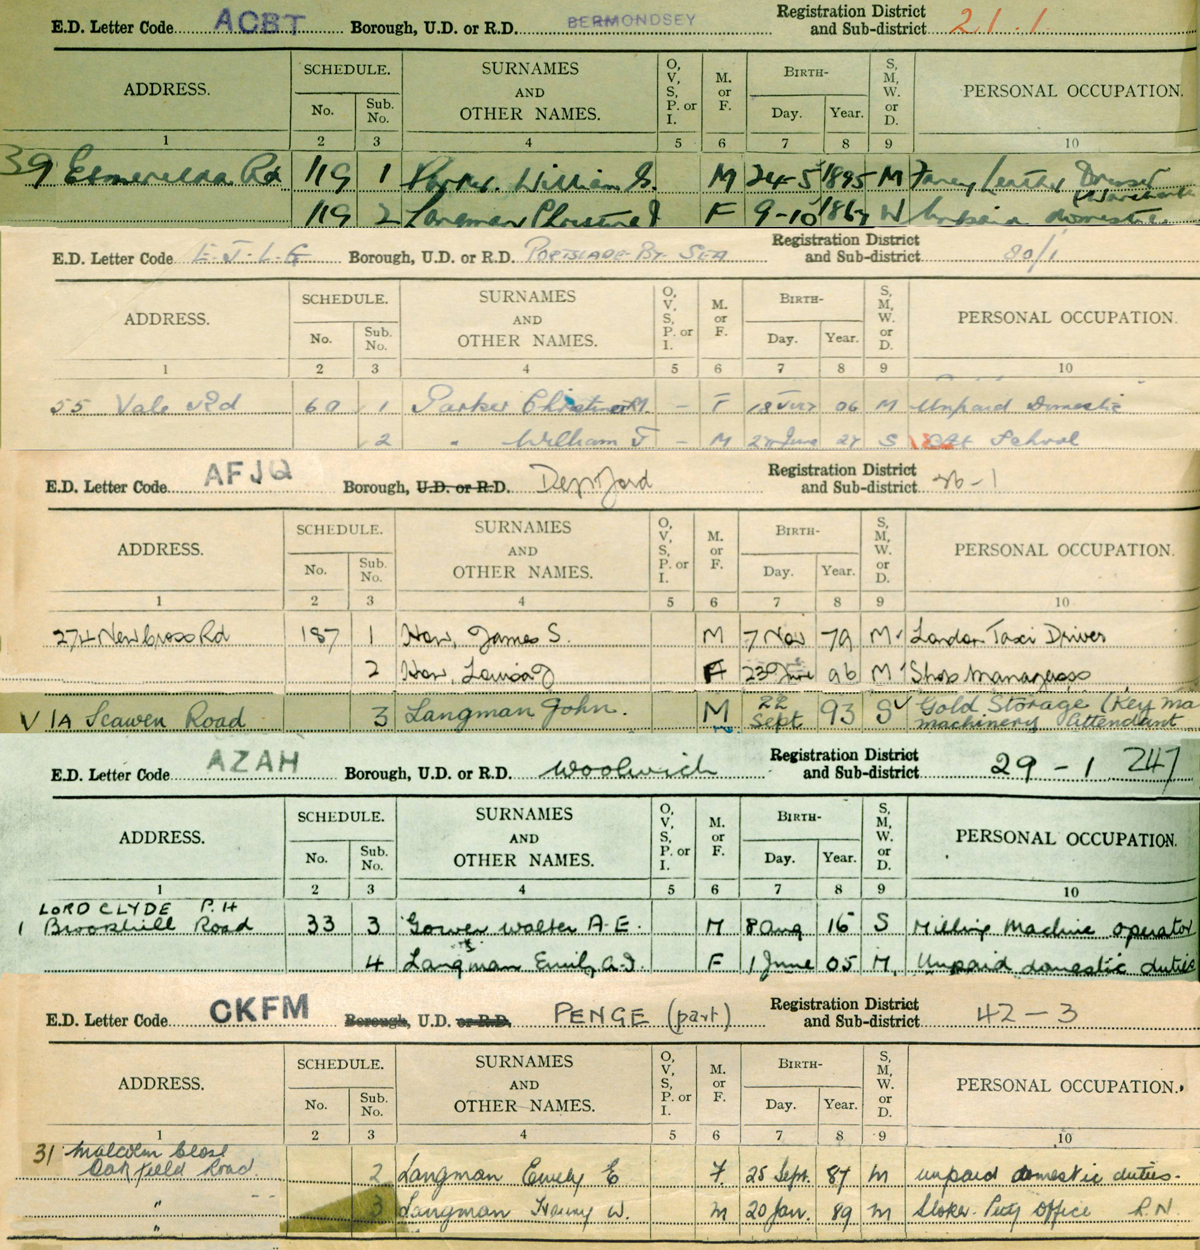 E.D. Letter Code ACBT Borough, U.D. or R.D. BERMONDSEY Registration District and Sub-district 21.1
ADDRESS. SCHEDULE. No. Sub. No. SURNAMES AND OTHER NAMES. O, V, S, P. or I. M. or F. BIRTH- Day. Year. S, M, W. or D. PERSONAL OCCUPATION.
1 2 3 4 5 6 7 8 9 10
39 Esmerelda Rd 119 1 Parker. William G. M 24-5 1895 M Fancy Leather Dresser
119 2 Langman F 9-10 1867 W Unpaid domestic
E.D. Letter Code E.J.L.G Borough, U.D. or R.D. PORTSLADE-BY-SEA Registration District and Sub-district 80/1
ADDRESS. SCHEDULE. No. Sub. No. SURNAMES AND OTHER NAMES. O, V, S, P. or I. M. or F. BIRTH- Day. Year. S, M, W. or D. PERSONAL OCCUPATION.
1 2 3 4 5 6 7 8 9 10
55 Vale Rd 60 1 Parker M. - F 18 06 M Unpaid Domestic
2 " William J - M June 27 S At School
E.D. Letter Code AFJQ Borough, U.D. or R.D. Deptford Registration District and Sub-district 26-1
ADDRESS. SCHEDULE. No. Sub. No. SURNAMES AND OTHER NAMES. O, V, S, P. or I. M. or F. BIRTH- Day. Year. S, M, W. or D. PERSONAL OCCUPATION.
1 2 3 4 5 6 7 8 9 10
274 New Cross Rd 187 1 How, James S. M 7 Nov 79 M London Taxi Driver
2 How, Louisa J F 23 96 M Shop Manageress
V 1A Scawen Road 3 Langman John. M 22 Sept 93 S Gold Storage (Key ma
machinery Attendant
E.D. Letter Code AZAH Borough, U.D. or R.D. Woolwich Registration District and Sub-district 29-1 247
ADDRESS. SCHEDULE. No. Sub. No. SURNAMES AND OTHER NAMES. O, V, S, P. or I. M. or F. BIRTH- Day. Year. S, M, W. or D. PERSONAL OCCUPATION.
1 2 3 4 5 6 7 8 9 10
LORD CLYDE P.H
1 Brookhill Road 33 3 Gower Walter A.E. M 8 Aug 16 S Milling Machine operator
4 Langman Emily A.J. F 1 June 05 M. Unpaid domestic duties
E.D. Letter Code CKFM Borough, U.D. or R.D. PENGE (part) Registration District and Sub-district 42-3
ADDRESS. SCHEDULE. No. Sub. No. SURNAMES AND OTHER NAMES. O, V, S, P. or I. M. or F. BIRTH- Day. Year. S, M, W. or D. PERSONAL OCCUPATION.
1 2 3 4 5 6 7 8 9 10
31 Malcolm Close
Oakfield Road 2 Langman Emily E F. 25 Sept. 87 M unpaid domestic duties.
" 3 Langman Henry W. M 20 Jan. 89 M Stoker. Petty Office R.N.
"